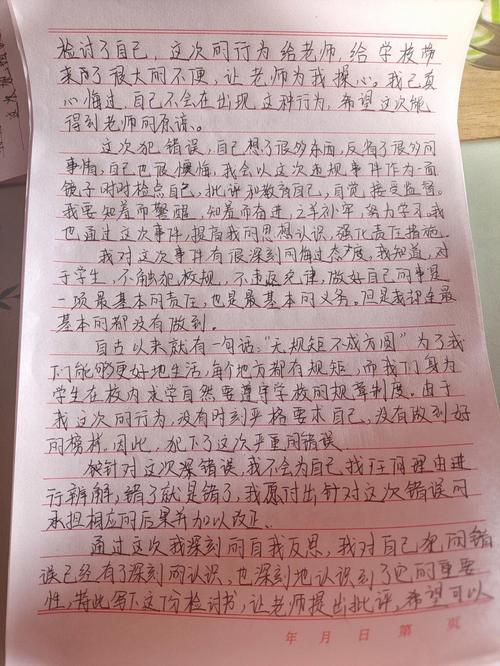 检讨了自己，这次的行为给老师，给学校带
来了很大的不便，让老师为我操心。我已真
心悔过，自己不会在出现这种行为，希望这次能
得到老师的原谅。
这次犯错误，自己想了很多东西，反省了很多的
事情，自己也很懊悔，我会以这次违规事件作为一面
镜子时时检点自己，批评和教育自己，自觉接受监督。
我要知羞而警醒，知羞而奋进，亡羊补牢，努力学习。我
也通过这次事件，提高我的思想认识，强化责任措施。
我对这次事件有很深刻的悔过态度，我知道，对
于学生，不触犯校规，不违反纪律，做好自己的事是
一项最基本的责任，也是最基本的义务。但是我却连最
基本的都没有做到。
自古以来就有一句话：“无规矩不成方圆”为了我
们能够更好地生活，每个地方都有规矩，而我们身为
学生在校内求学自然要遵守学校的规章制度。由于
我这次的行为，没有时刻严格要求自己，没有做到好
的榜样，因此，犯下了这次严重的错误。
针对这次深错误，我不会为自己找任何理由进
行辨解，错了就是错了，我愿付出针对这次错误的
承担相应的后果并加以改正。
通过这次我深刻的自我反思，我对自己犯的错
误已经有了深刻的认识，也深刻地认识到了它的重要
性，特此写下这份检讨书，让老师提出批评，希望可以
年 月 日 第 页